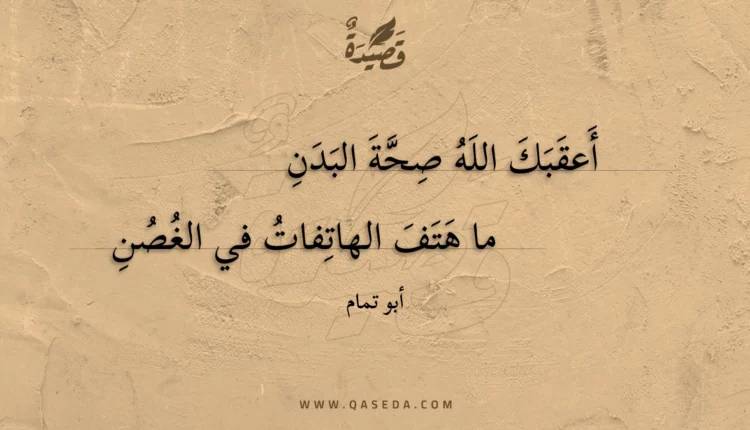 قَصِيدَةٌ
أَعقَبَكَ اللَهُ صِحَّةَ البَدَنِ
ما هَتَفَ الهاتِفاتُ في الغُصُنِ
أبو تمام
WWW.QASEDA.COM